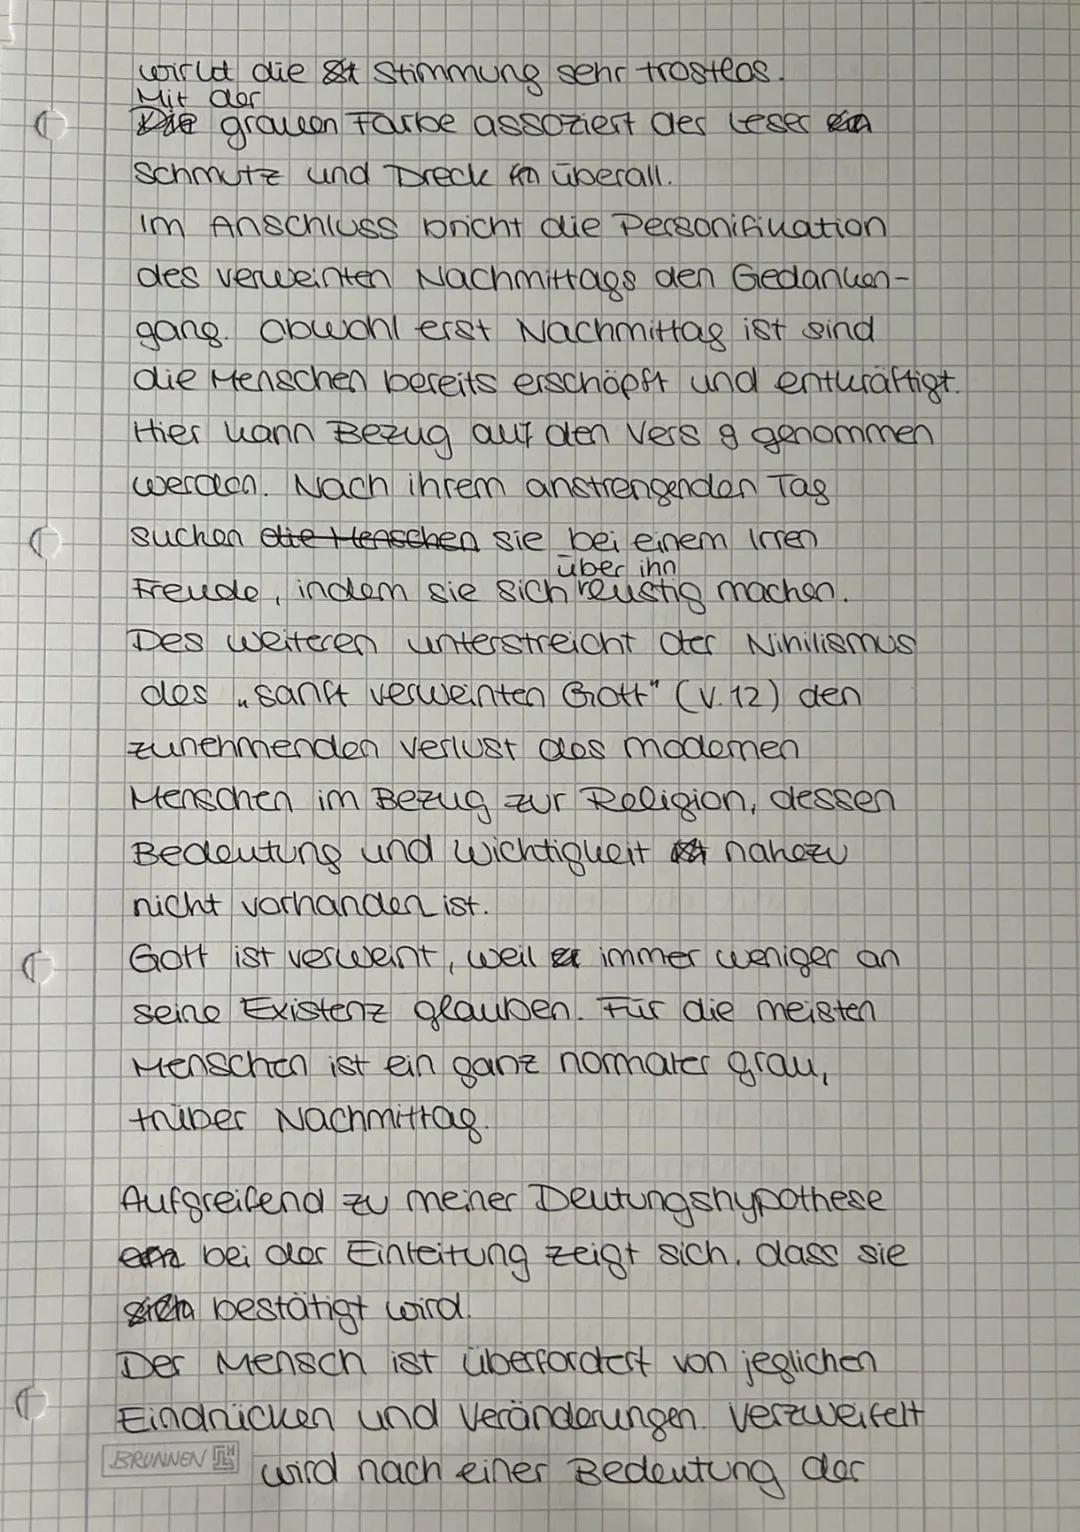 wirkt die Stimmung sehr trostlos.
Mit der
Die grauen Farbe assoziert der Leser ein
Schmutz und Dreck in überall.
Im Anschluss bricht die Personifikation
des verweinten Nachmittags den Gedanken-
gang. Obwohl erst Nachmittag ist sind
die Menschen bereits erschöpft und entkräftigt.
Hier kann Bezug auf den Vers 8 genommen
werden. Nach ihrem anstrengenden Tag
suchen die Menschen sie bei einem Irren
über ihn
Freude, indem sie sich reustig machen.
Des weiteren unterstreicht der Nihilismus
des „sanft verweinten Gott" (V. 12) den
zunehmenden Verlust des modernen
Menschen im Bezug zur Religion, dessen
Bedeutung und Wichtigkeit ist nahezu
nicht vorhanden ist.
Gott ist verweint, weil er immer weniger an
seine Existenz glauben. Für die meisten
Menschen ist ein ganz normaler grau,
trüber Nachmittag.
Aufgreifend zu meiner Deutungshypothese
bei der Einleitung zeigt sich, dass sie
sich bestätigt wird.
Der Mensch ist überfordert von jeglichen
Eindrücken und Veränderungen. Verzweifelt
BRUNNEN wird nach einer Bedeutung der